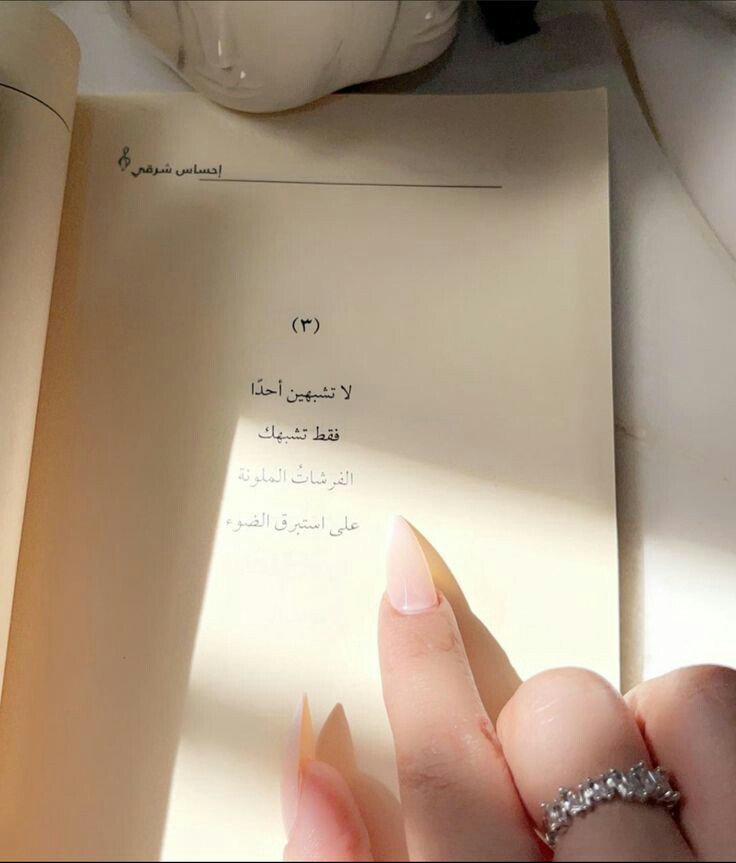 إحساس شرقي
(٣)
لا تشبهين أحدًا
فقط تشبهك
الفرشاتُ الملونة
على استبرق الضوء